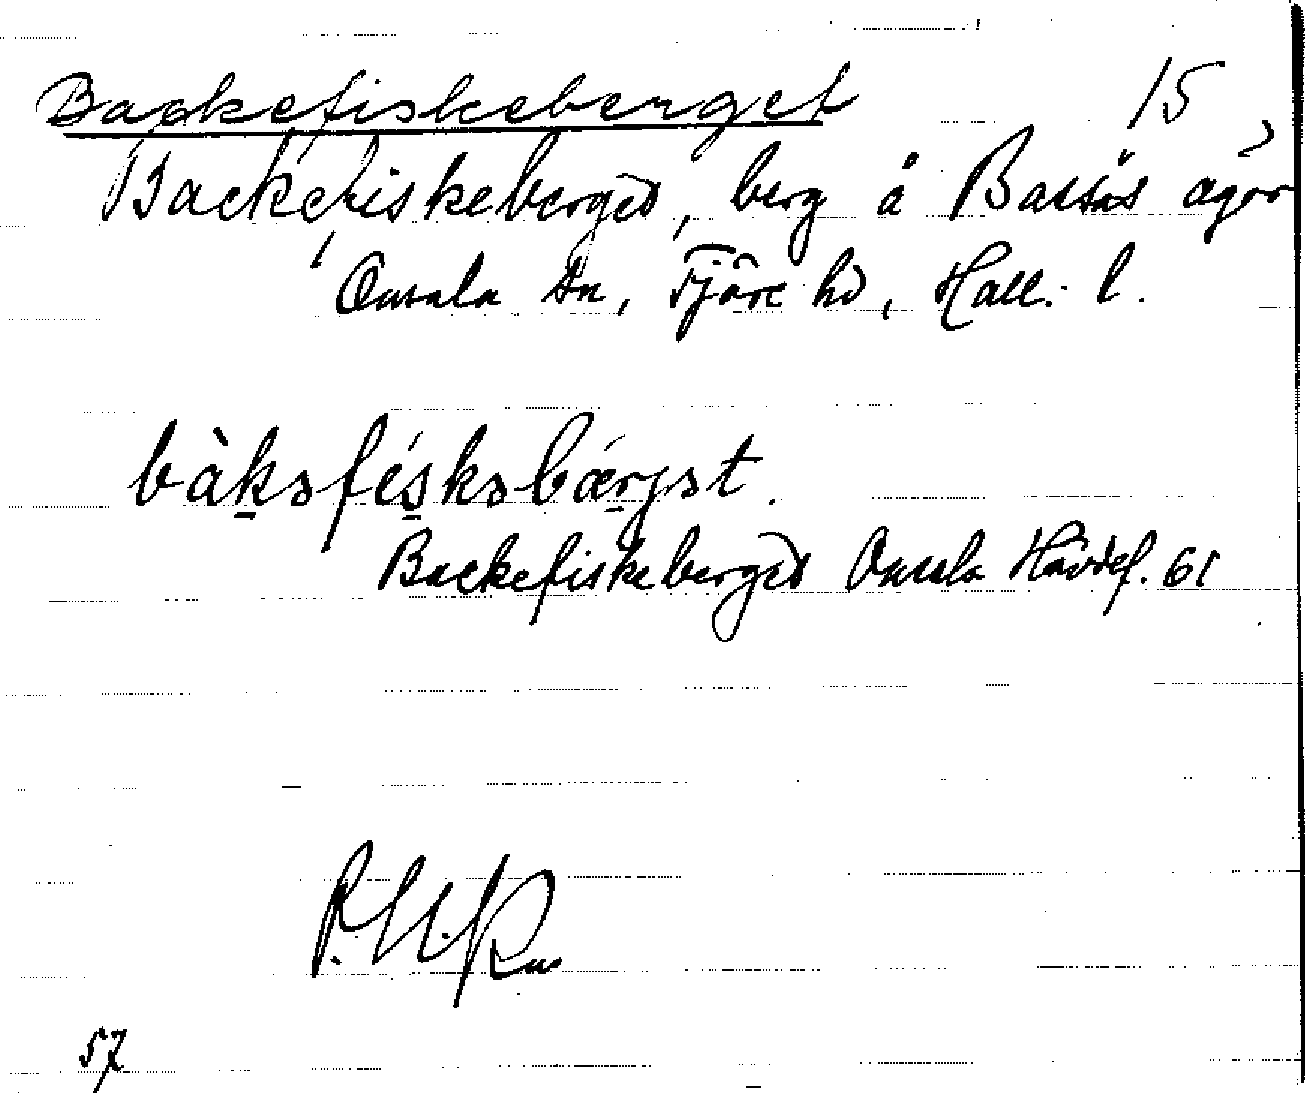 Backefiskeberget 15
Backefiskeberget, berg å Bassås ägor,
Onsala sn, Fjäre hd, Hall. l.
bàkəféskəbærjət.
Backefiskeberget Onsala Hävdef. 61
57